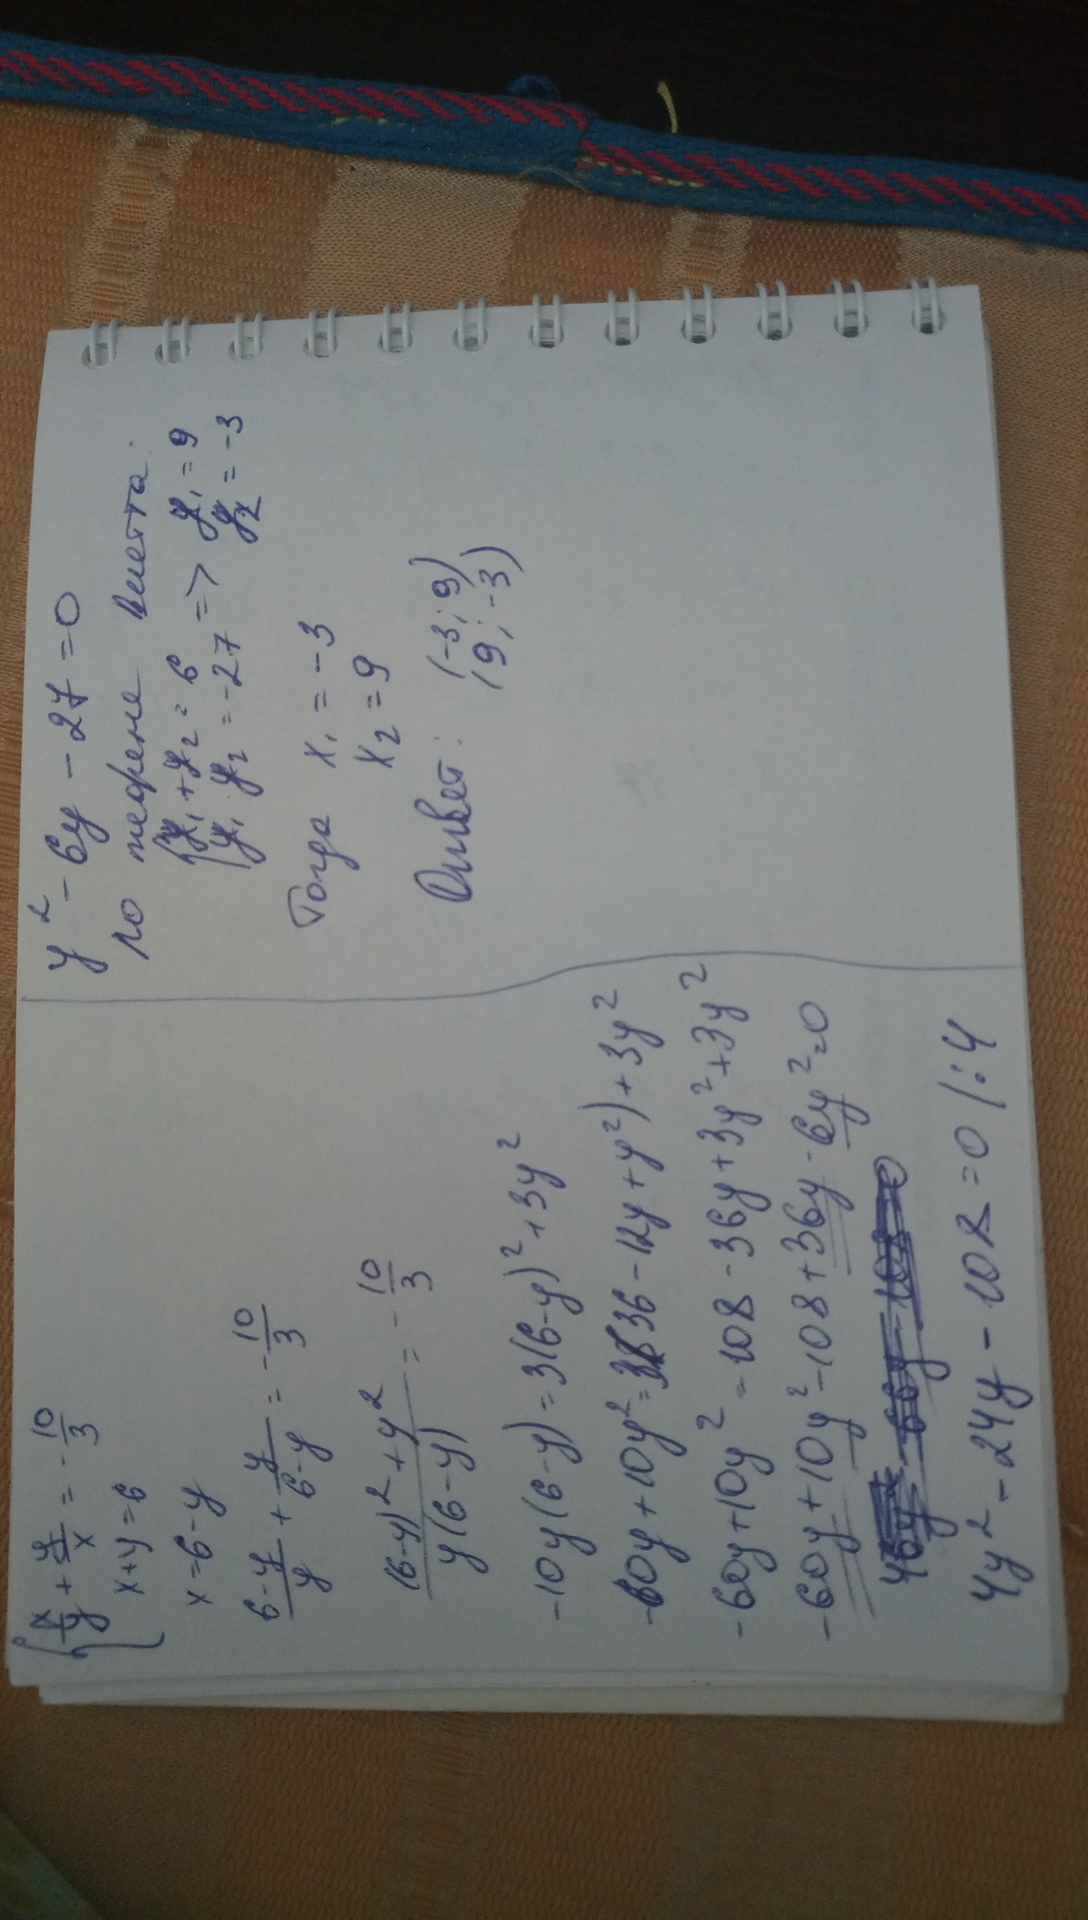 { x/y + y/x = -10/3
x+y=6
x=6-y
(6-y)/y + y/(6-y) = -10/3
((6-y)²+y²)/(y(6-y)) = -10/3
-10y(6-y)=3(6-y)²+3y²
-60y+10y²=3(36-12y+y²)+3y²
-60y+10y²=108-36y+3y²+3y²
-60y+10y²-108+36y-6y²=0
4y²-24y-108=0 /:4
y²-6y-27=0
по теореме Виетта:
{ y₁+y₂=6
y₁·y₂=-27 => y₁=9
y₂=-3
Тогда x₁=-3
x₂=9
Ответ: (-3;9)
(9;-3)